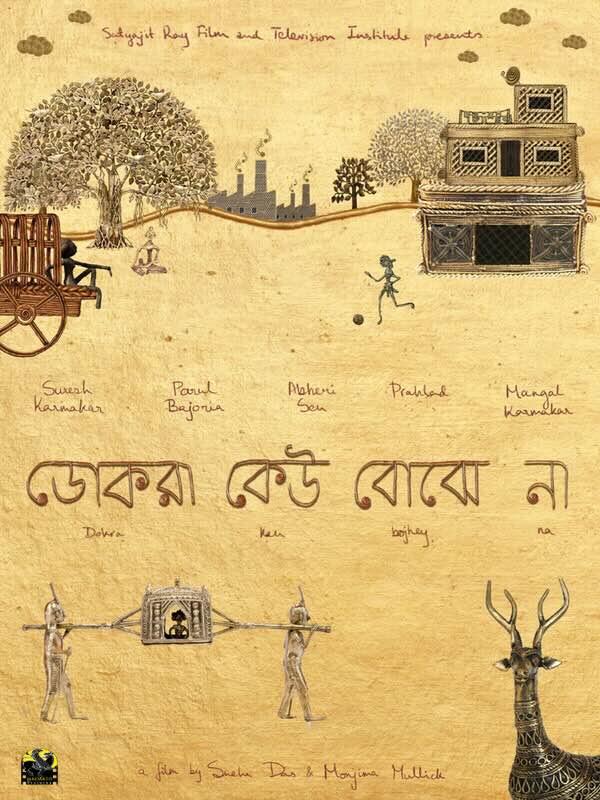 Satyajit Ray Film and Television Institute presents
Suresh Karmakar
Parul Bajoria
Abheri Sen
Prahlad
Mangal Karmakar
ডোকরা কেউ বোঝে না
Dokra keu bojhey na
a film by Sneha Das & Monjima Mullick